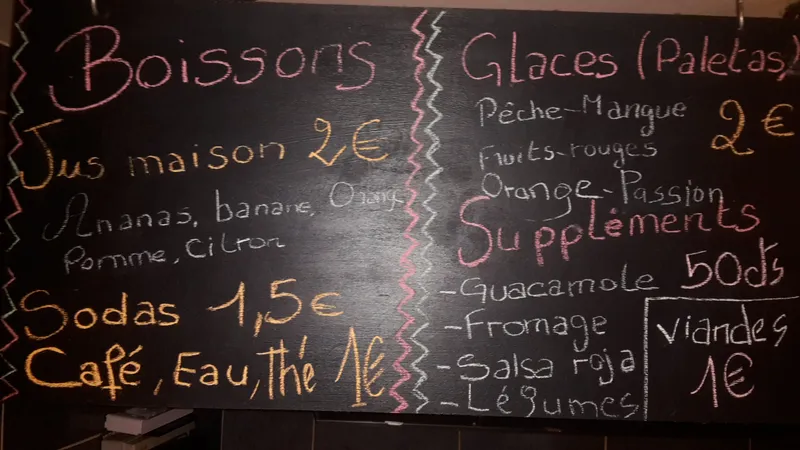 Boissons
Jus maison 2€
Ananas, banane, Orange
Pomme, Citron
Sodas 1,5€
Café, Eau, Thé 1€
Glaces (Paletas)
Pêche-Mangue
2€
Fruits-rouges
Orange-Passion
Suppléments
-Guacamole 50cts
-Fromage
-Salsa roja
-Légumes
Viandes
1€